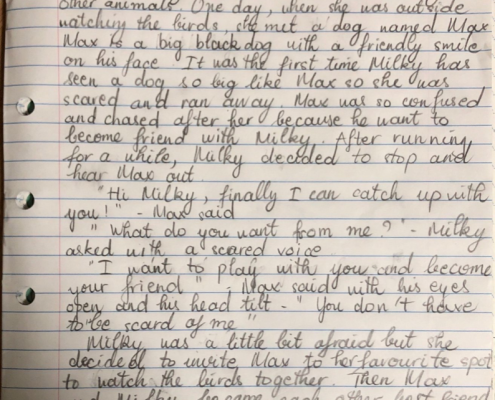 other animals. One day, when she was outside
watching the birds, she met a dog named Max
Max is a big black dog with a friendly smile
on his face. It was the first time Milky has
seen a dog so big like Max so she was
scared and ran away. Max was so confused
and chased after her because he want to
become friend with Milky. After running
for a while, Milky decided to stop and
hear Max out.
"Hi Milky, finally I can catch up with
you!" - Max said
"What do you want from me?" - Milky
asked with a scared voice
"I want to play with you and become
your friend" - Max said with his eyes
open and his head tilt - "You don't have
to be scard of me"
Milky was a little bit afraid but she
decided to invite Max to her favourite spot
to watch the birds together. Then Max
and Milky became each other best friend